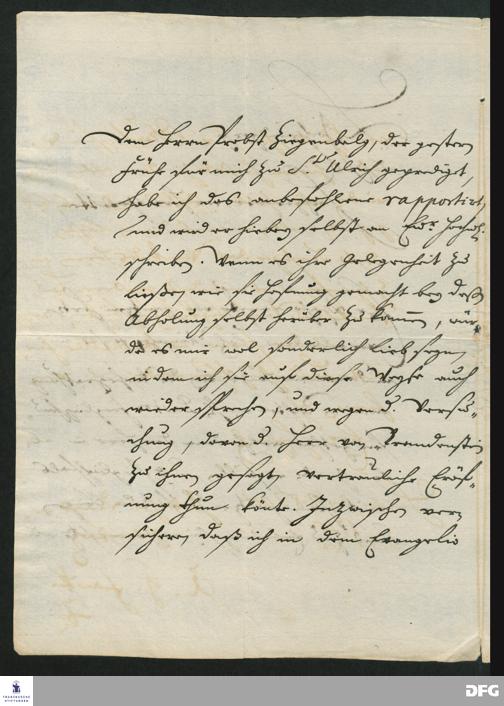 Dem Herrn Probst Ziegenbalg, der gestern
frühe für mich zu St. Ulrich geprediget,
habe ich das anbefohlene rapportirt,
und wird er hiebey selbst an Ew. Hochw.
schreiben. Wenn es ihre Gelegenheit zu
ließe, wie sie Hofnung gemacht bey der
Abholung selbst herüber zu kommen, wür-
de es mir wol sonderlich lieb seyn,
indem ich sie auf diese Weyse auch
wieder sprechen, und wegen d. Versu-
chung, davon d. Herr von Brandenstein
zu ihnen gesagt, vertrauliche Eröf-
nung thun könte. Inzwischen ver-
sichere, daß ich in dem Evangelio
FRANCKESCHE
STIFTUNGEN
DFG